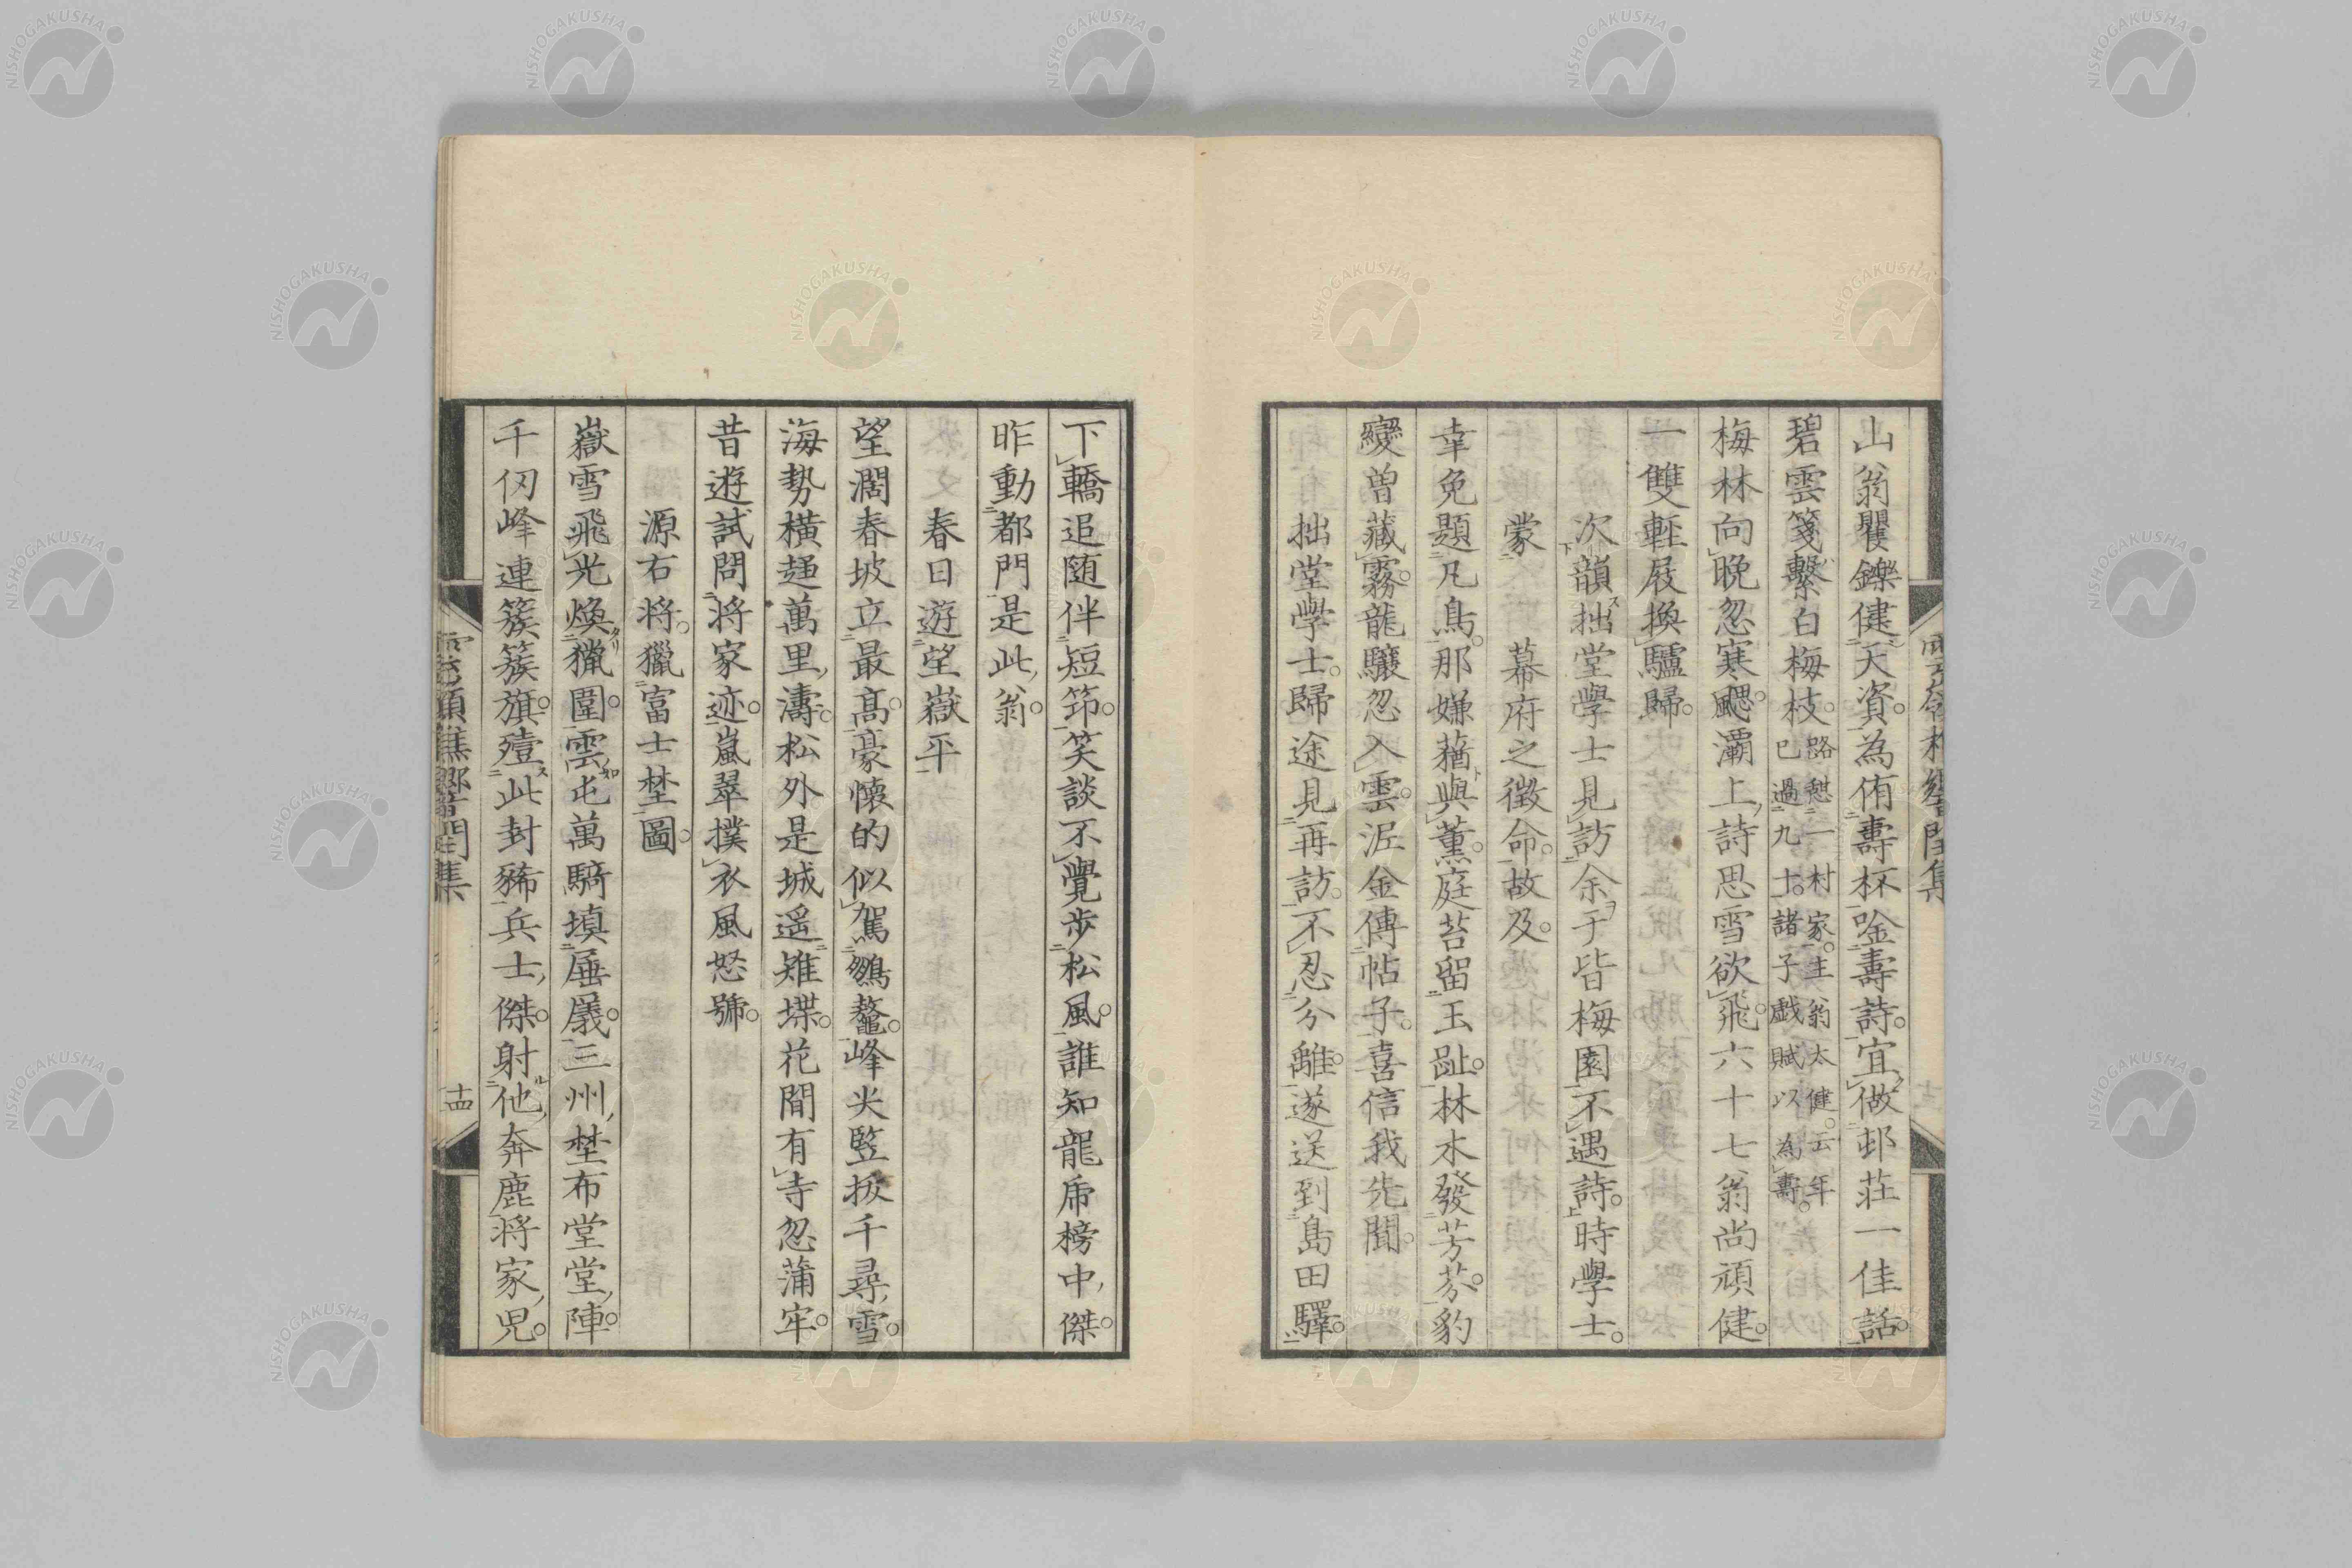 山翁矍鑠健天資。為侑壽杯唫壽詩。宜做邨莊一佳話
碧雲箋繫白梅枝。路憩一村家。主翁太健。云年
已過九十。諸子戯賦以為壽。
梅林向晩忽寒颸。灞上詩思雪欲飛。六十七翁尚頑健。
一雙輕屐換驢歸。
次韻拙堂學士見訪余于皆梅園不遇詩。時學士。
蒙　幕府之徴命。故及。
幸免題凡鳥。那嫌蕕與薫。庭苔留玉趾。林木發芳芬。豹
變曽藏霧。龍驤忽入雲。泥金傳帖子。喜信我先聞。
拙堂學士。歸途見再訪。不忍分離。遂送到島田驛。
下轎追随伴短筇。笑談不覺歩松風。誰知龍乕榜中傑。
昨動都門是此翁。
春日遊望嶽平
望濶春坡立最高。豪懷的似駕鰲。峰尖竪拔千尋雪。
海勢橫趨萬里濤。松外是城遥雉堞。花間有寺忽蒲牢。
昔遊試問將家迹。嵐翠撲衣風怒號。
源右將。獵富士埜圖。
嶽雪飛光煥獵圍。雲屯萬騎填厜㕒。三州埜布堂堂陣。
千仭峰連簇簇旗。殪此封豨兵士傑。射他奔鹿將家兒。
十四
NISHOGAKUSHA